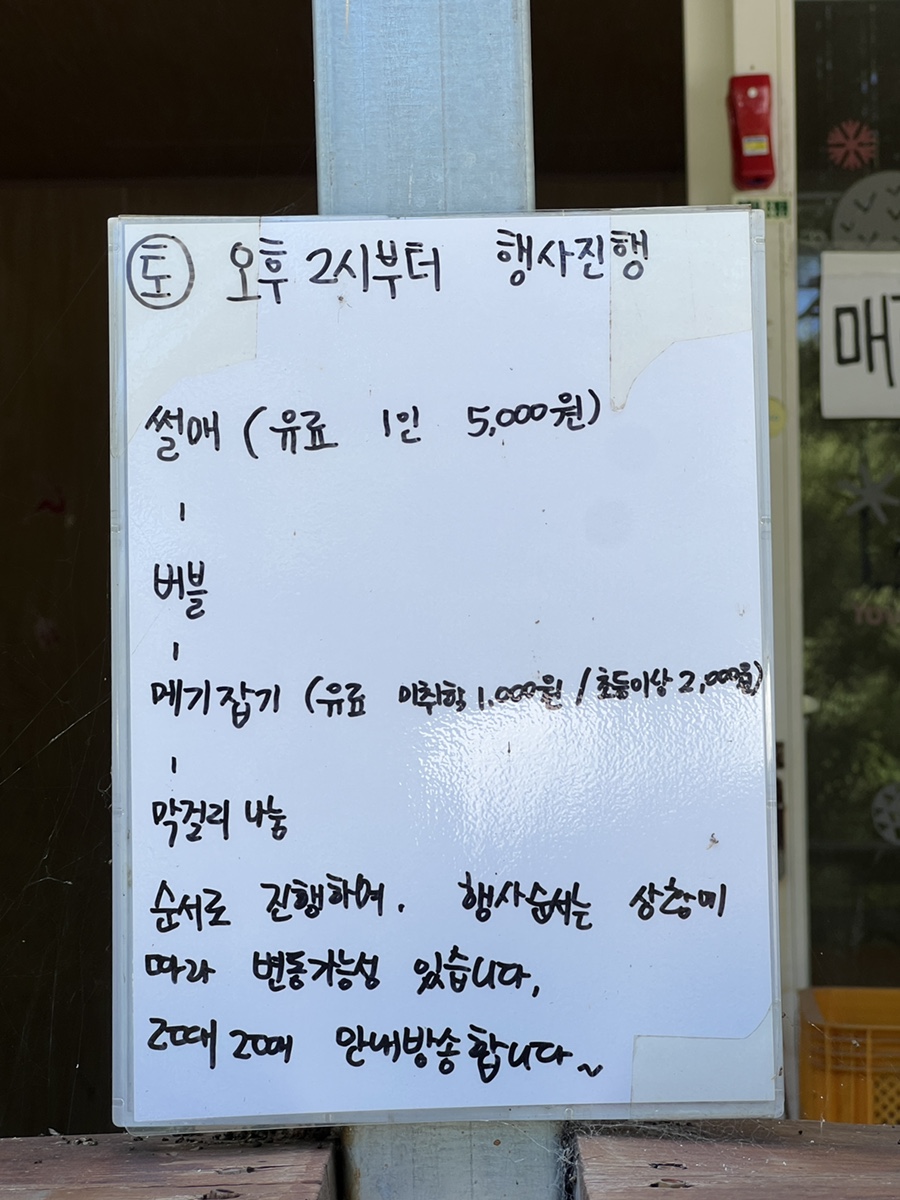 토 오후 2시부터 행사진행
썰매 (유료 1인 5,000원)
버블
메기잡기 (유료 미취학 1,000원 / 초등이상 2,000원)
막걸리 나눔
순서로 진행하며. 행사순서는 상황에
따라 변동가능성 있습니다,
그때 그때 안내방송 합니다~
매